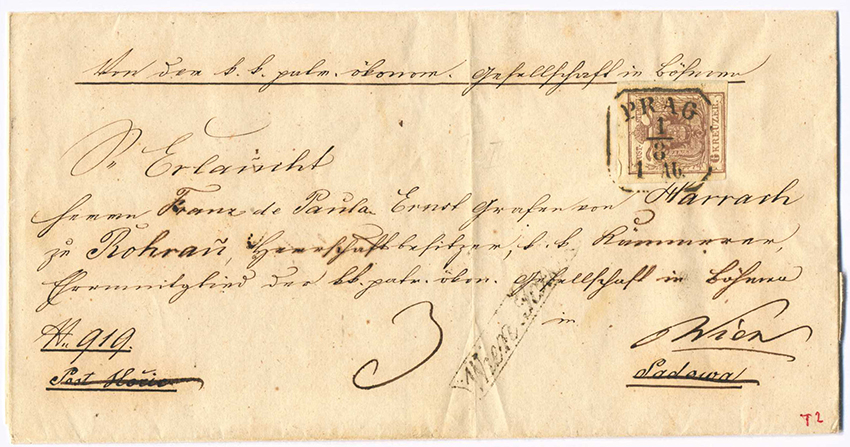 Von der k. k. patr. ökonom. Gesellschaft in Böhmen
PRAG
1
8
1 Ab.
6 KREUZER.
Sr Erlaucht
Herrn Franz de Paula Ernst Grafen von Harrach
zu Rohrau, Herrschaftbesitzer, k. k. Kämmerer,
Ehrenmitglied der kk. patr. ökon. Gesellschaft in Böhmen
in
No. 919
3
Wien
Post Hořic
Sadowa
T2